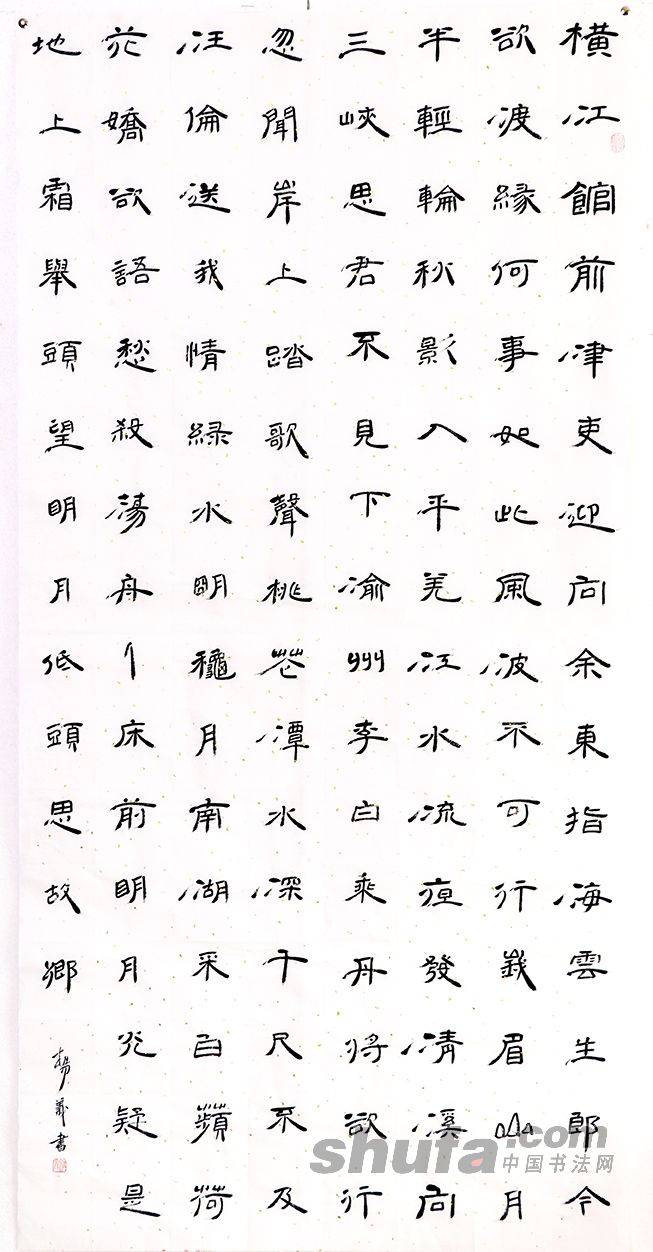 橫江館前津吏迎向余東指海雲生郎今
欲渡緣何事如此風波不可行峩眉山月
半輕輪秋影入平羌江水流夜發清溪向
三峽思君不見下渝州李白乘舟將欲行
忽聞岸上踏歌聲桃花潭水深千尺不及
汪倫送我情綠水明龝月南湖采白蘋荷
花嬌欲語愁殺蕩舟人床前明月光疑是
地上霜舉頭望明月低頭思故鄉
楊義書
shufa.com
中国书法网